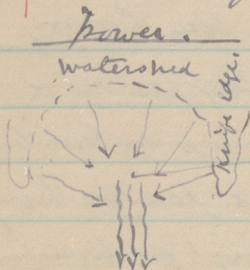 Power.
Watershed
Knife edge.